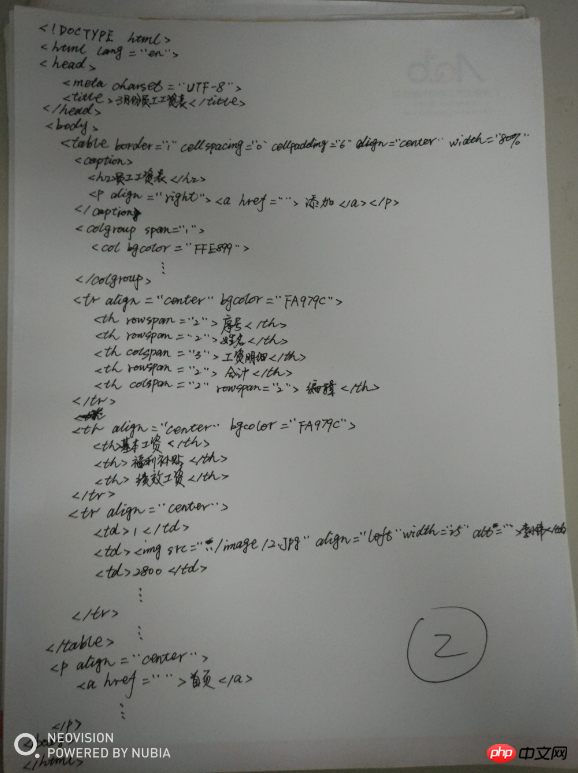 <!DOCTYPE html>
<html lang="en">
<head>
<meta charset="UTF-8">
<title>3月份员工工资表</title>
</head>
<body>
<table border="1" cellspacing="0" cellpadding="6" align="center" width="80%"
<caption>
<h2>员工工资表</h2>
<p align="right"><a href="">添加</a></p>
</caption>
<colgroup span="1">
<col bgcolor="FFE899">
⋮
</colgroup>
<tr align="center" bgcolor="FA979C">
<th rowspan="2">序号</th>
<th rowspan="2">姓名</th>
<th colspan="3">工资明细</th>
<th rowspan="2">合计</th>
<th colspan="2" rowspan="2">编辑</th>
</tr>
<th align="center" bgcolor="FA979C">
<th>基本工资</th>
<th>福利补贴</th>
<th>绩效工资</th>
</tr>
<tr align="center">
<td>1</td>
<td><img src="../image/2.jpg" align="left" width="25" alt="">
<td>2800</td>
⋮
</tr>
⋮
</table>
<p align="center">
<a href="">首页</a>
⋮
</p>
</html>
2
NEOVISION
POWERED BY NUBIA
php中文网